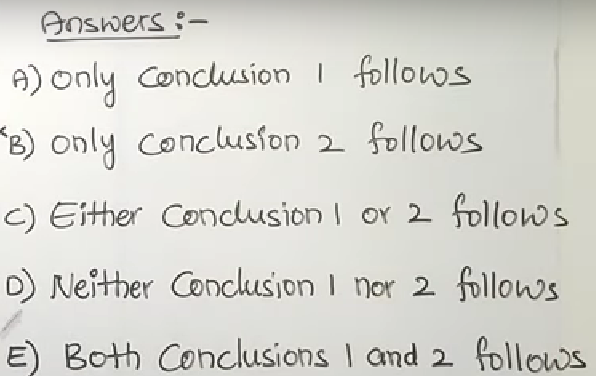 Answers :-
A) only conclusion 1 follows
B) only conclusion 2 follows
C) Either Conclusion 1 or 2 follows
D) Neither Conclusion 1 nor 2 follows
E) Both Conclusions 1 and 2 follows